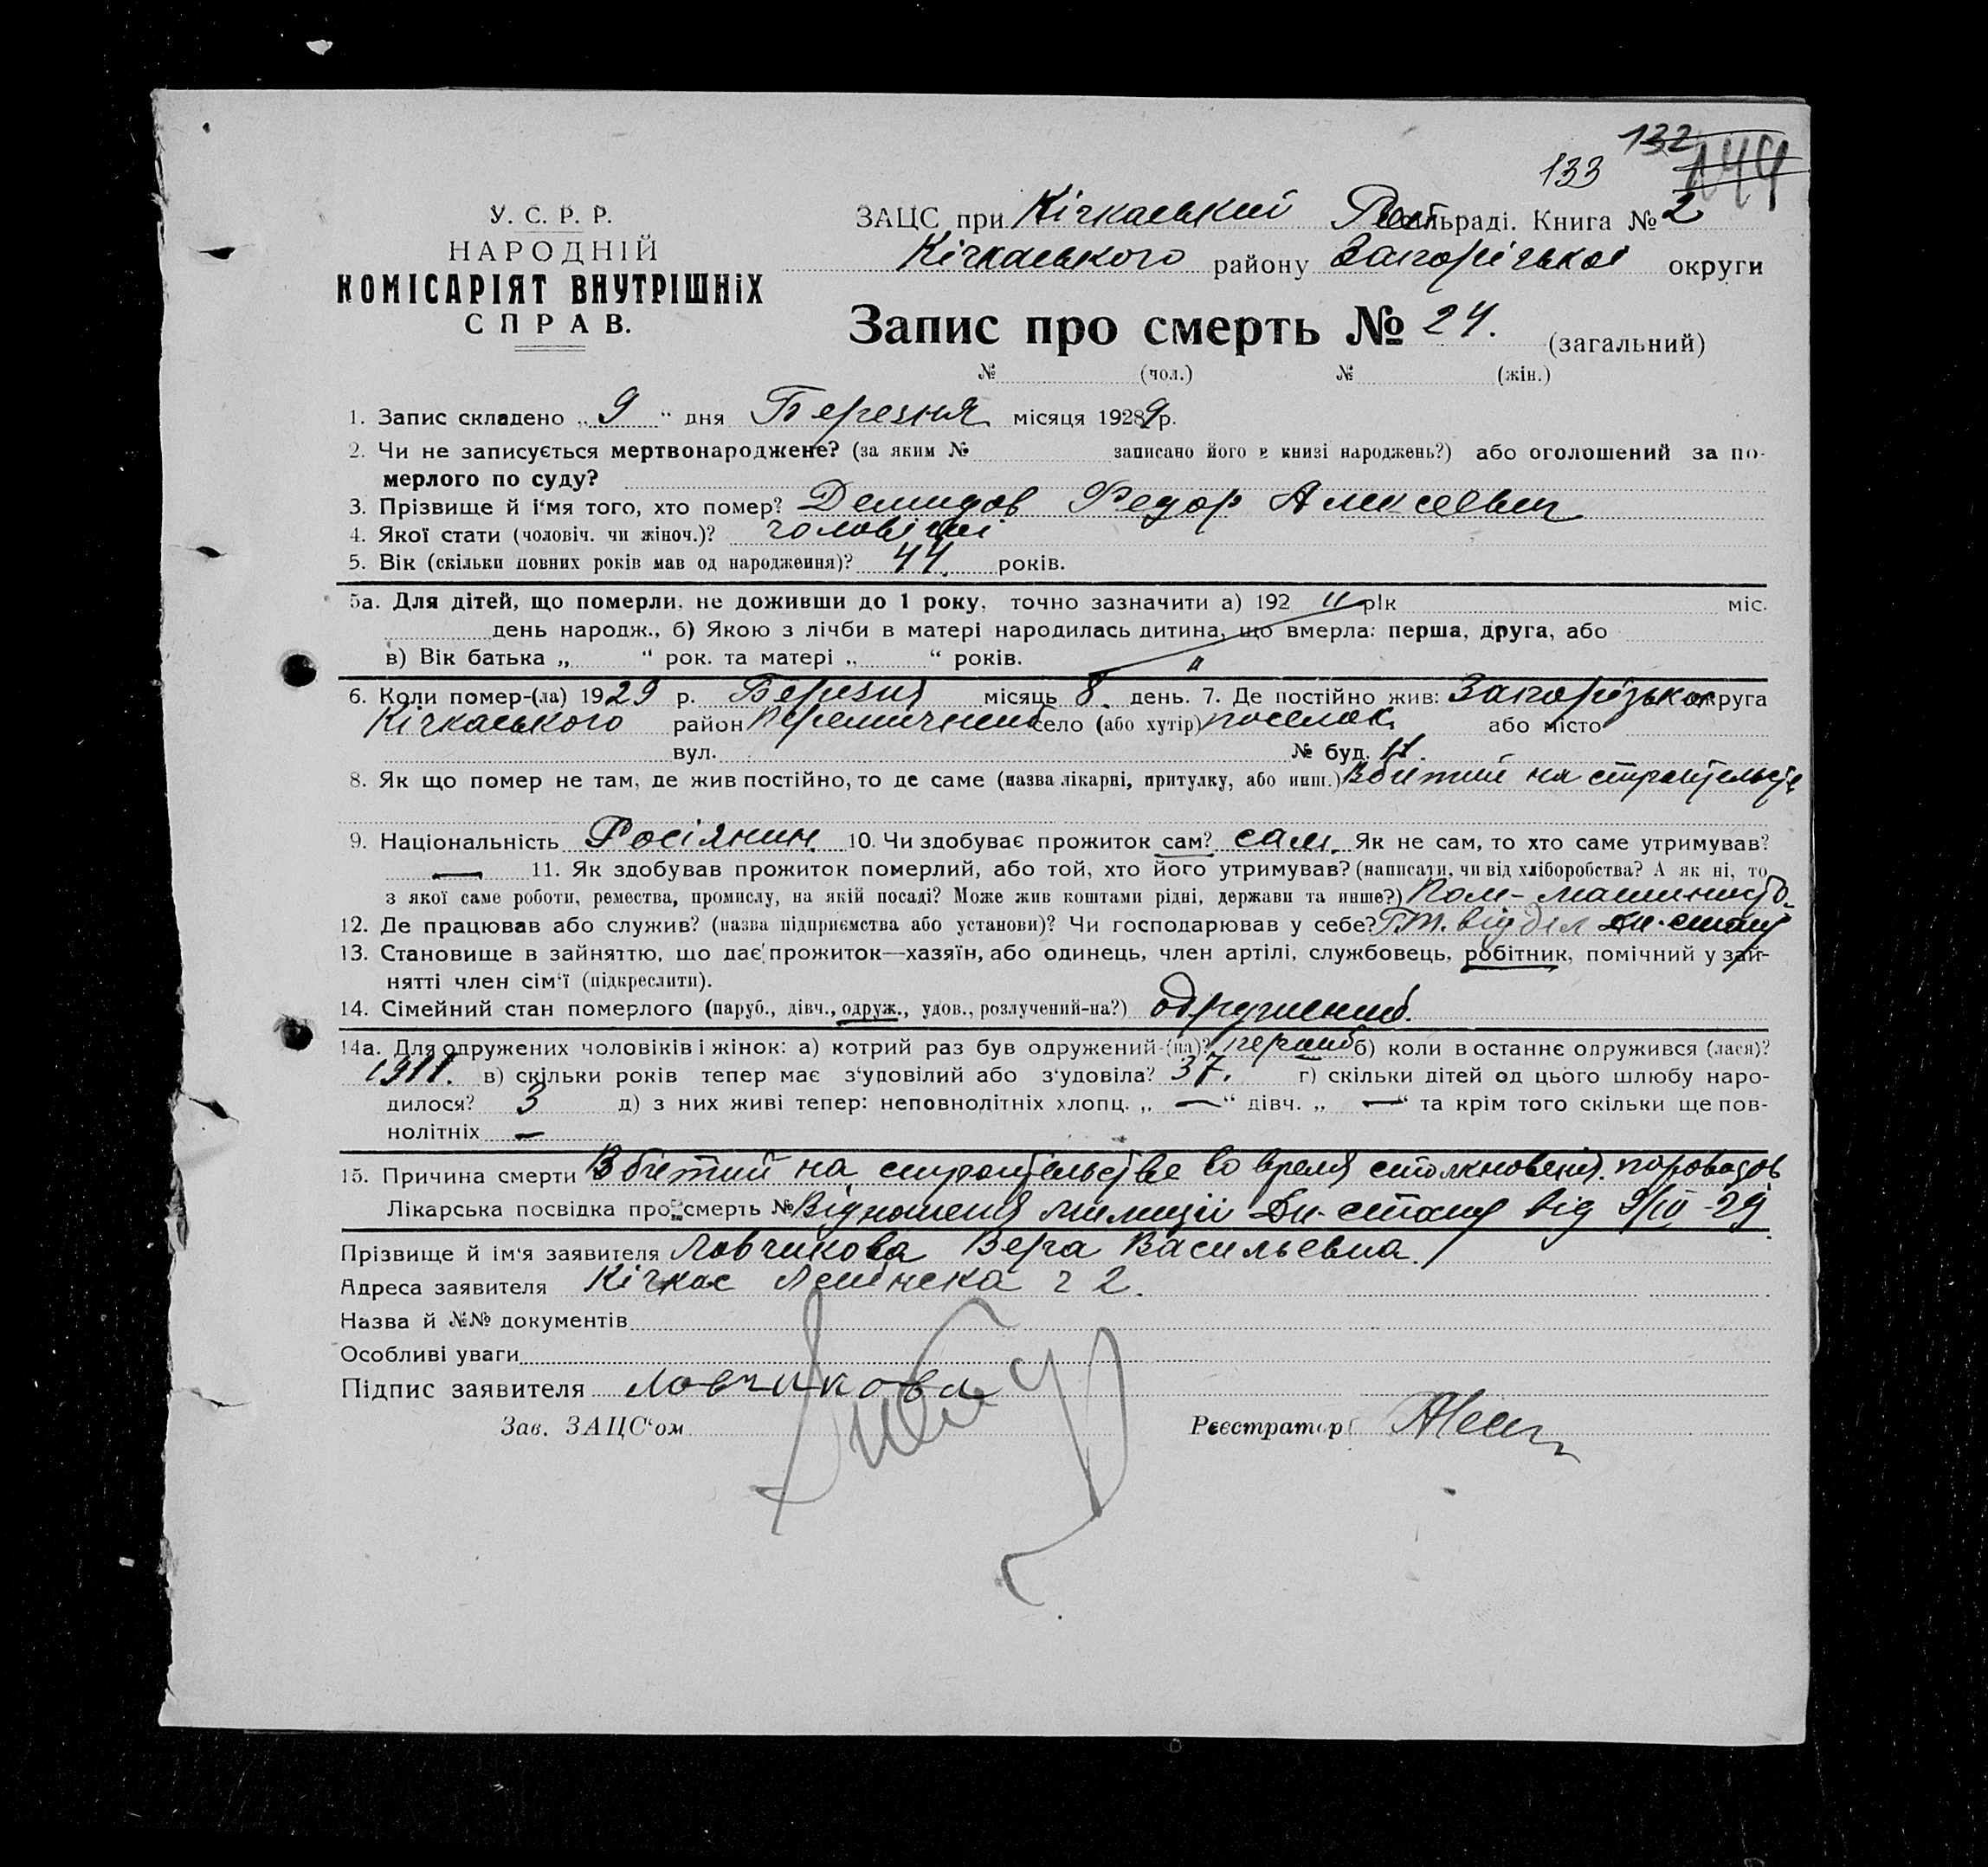 132
133
144
У. С. Р. Р.
НАРОДНІЙ
КОМІСАРІЯТ ВНУТРІШНІХ
СПРАВ.
ЗАЦС при Кічкаський сільраді. Книга № 2
Кічкаського району Запорізької округи
Запис про смерть № 24. (загальний)
№ (чол.) № (жін.)
1. Запис складено „ 9 “ дня Березня місяця 19289р.
2. Чи не записується мертвонароджене? (за яким № записано його в книзі народжень?) або оголошений за по-
мерлого по суду?
3. Прізвище й і‘мя того, хто помер? Демидов Федор Алексеевич
4. Якої стати (чоловіч. чи жіноч.)? чоловічиі
5. Вік (скільки повних років мав од народження)? 44. років.
5а. Для дітей, що померли, не доживши до 1 року, точно зазначити а) 192 „ рік міс.
день народж., б) Якою з лічби в матері народилась дитина, що вмерла: перша, друга, або
в) Вік батька „ “ рок. та матері „ “ років. „
6. Коли помер-(ла) 1929 р. Березня місяць 8. день. 7. Де постійно жив: Запорізька округа
Кічкаського район село (або хутір) поселок або місто
вул. № буд. 11.
8. Як що помер не там, де жив постійно, то де саме (назва лікарні, притулку, або инш.) Вбитий на строительстве
9. Національність Росіянин. 10. Чи здобуває прожиток сам? сам. Як не сам, то хто саме утримував?
— 11. Як здобував прожиток померлий, або той, хто його утримував? (написати, чи від хліборобства? А як ні, то
з якої саме роботи, ремества, промислу, на якій посаді? Може жив коштами рідні, держави та инше?) Пом-машиниста
12. Де працював або служив? (назва підприємства або установи)? Чи господарював у себе? відділ Дн-стану
13. Становище в зайняттю, що дає прожиток—хазяїн, або одинець, член артілі, службовець, робітник, помічний у зай-
нятті член сім‘ї (підкреслити).
14. Сімейний стан померлого (паруб., дівч., одруж., удов., розлучений-на?) одружений.
14а. Для одружених чоловіків і жінок: а) котрий раз був одружений-(на)? перший б) коли в останнє одружився (лася)?
1911. в) скільки років тепер має з‘удовілий або з‘удовіла? 37. г) скільки дітей од цього шлюбу наро-
дилося? 3 д) з них живі тепер: неповнолітніх хлопц. „ — “ дівч. „ — “ та крім того скільки ще пов-
нолітніх —
15. Причина смерти Вбитий на строительстве во время столкновения паровозов
Лікарська посвідка про смерть № Відношення милиції Дн-стану від 9/III-29
Прізвище й ім‘я заявителя Ловчикова Вера Васильевна.
Адреса заявителя Кічкас Ленінска ч 2.
Назва й №№ документів
Особливі уваги
Підпис заявителя Ловчикова
Зав. ЗАЦС‘ом Реєстратор